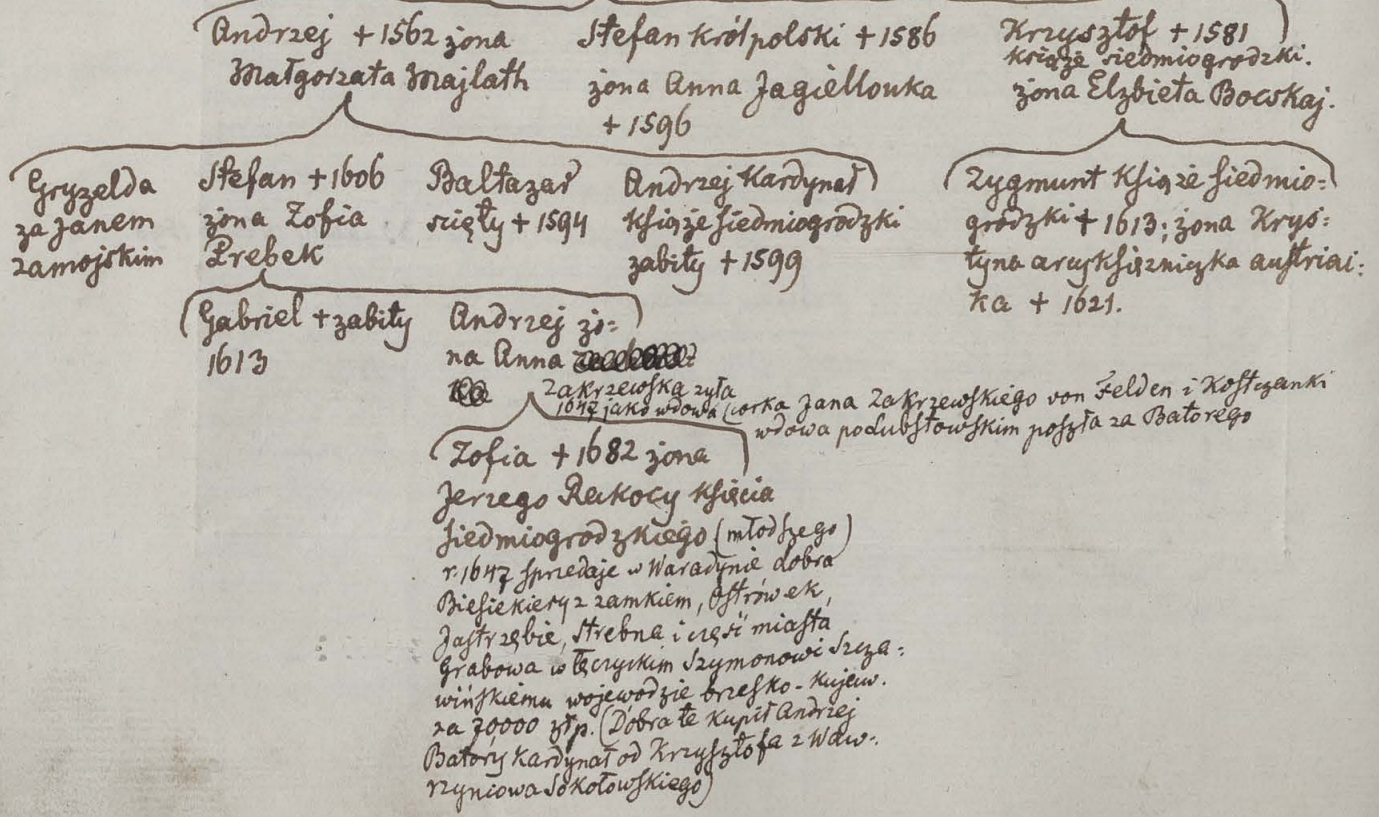 Andrzej + 1562 żona
Małgorzata Majlath
Stefan król polski + 1586
żona Anna Jagiellonka
+ 1596
Krzysztof + 1581
książe siedmiogrodzki.
żona Elzbieta Bocskaj.
Gryzelda
za Janem
zamojskim
Stefan + 1606
żona Zofia
Prebek
Baltazar
ścięty + 1594
Andrzej Kardynał
Książe siedmiogrodzki
zabity + 1599
Zygmunt Książe siedmio=
grodzki + 1613; żona Krys=
tyna arcyksiężniczka austriac=
ka + 1621.
Gabriel + zabity
1613
Andrzej żo=
na Anna
Zakrzewska żyła
1647 jako wdowa (corka Jana Zakrzewskiego von Felden i Kostczanki
wdowa po Lubstowskim poszła za Batorego
Zofia + 1682 żona
Jerzego Rakocy Księcia
siedmiogrodzkiego (młodszego)
r. 1647 sprzedaje w Waradynie dobra
Biesiekiery z zamkiem, Ostrówek,
Jastrzębie, Strebna i część miasta
Grabowa w łęczyckim Szymonowi Szcza=
wińskiemu wojewodzie brzesko-Kujaw.
za 70,000 złp. (Dobra te Kupił Andrzej
Batory Kardynał od Krzysztofa z Waw=
rzyńcowa Sokołowskiego)